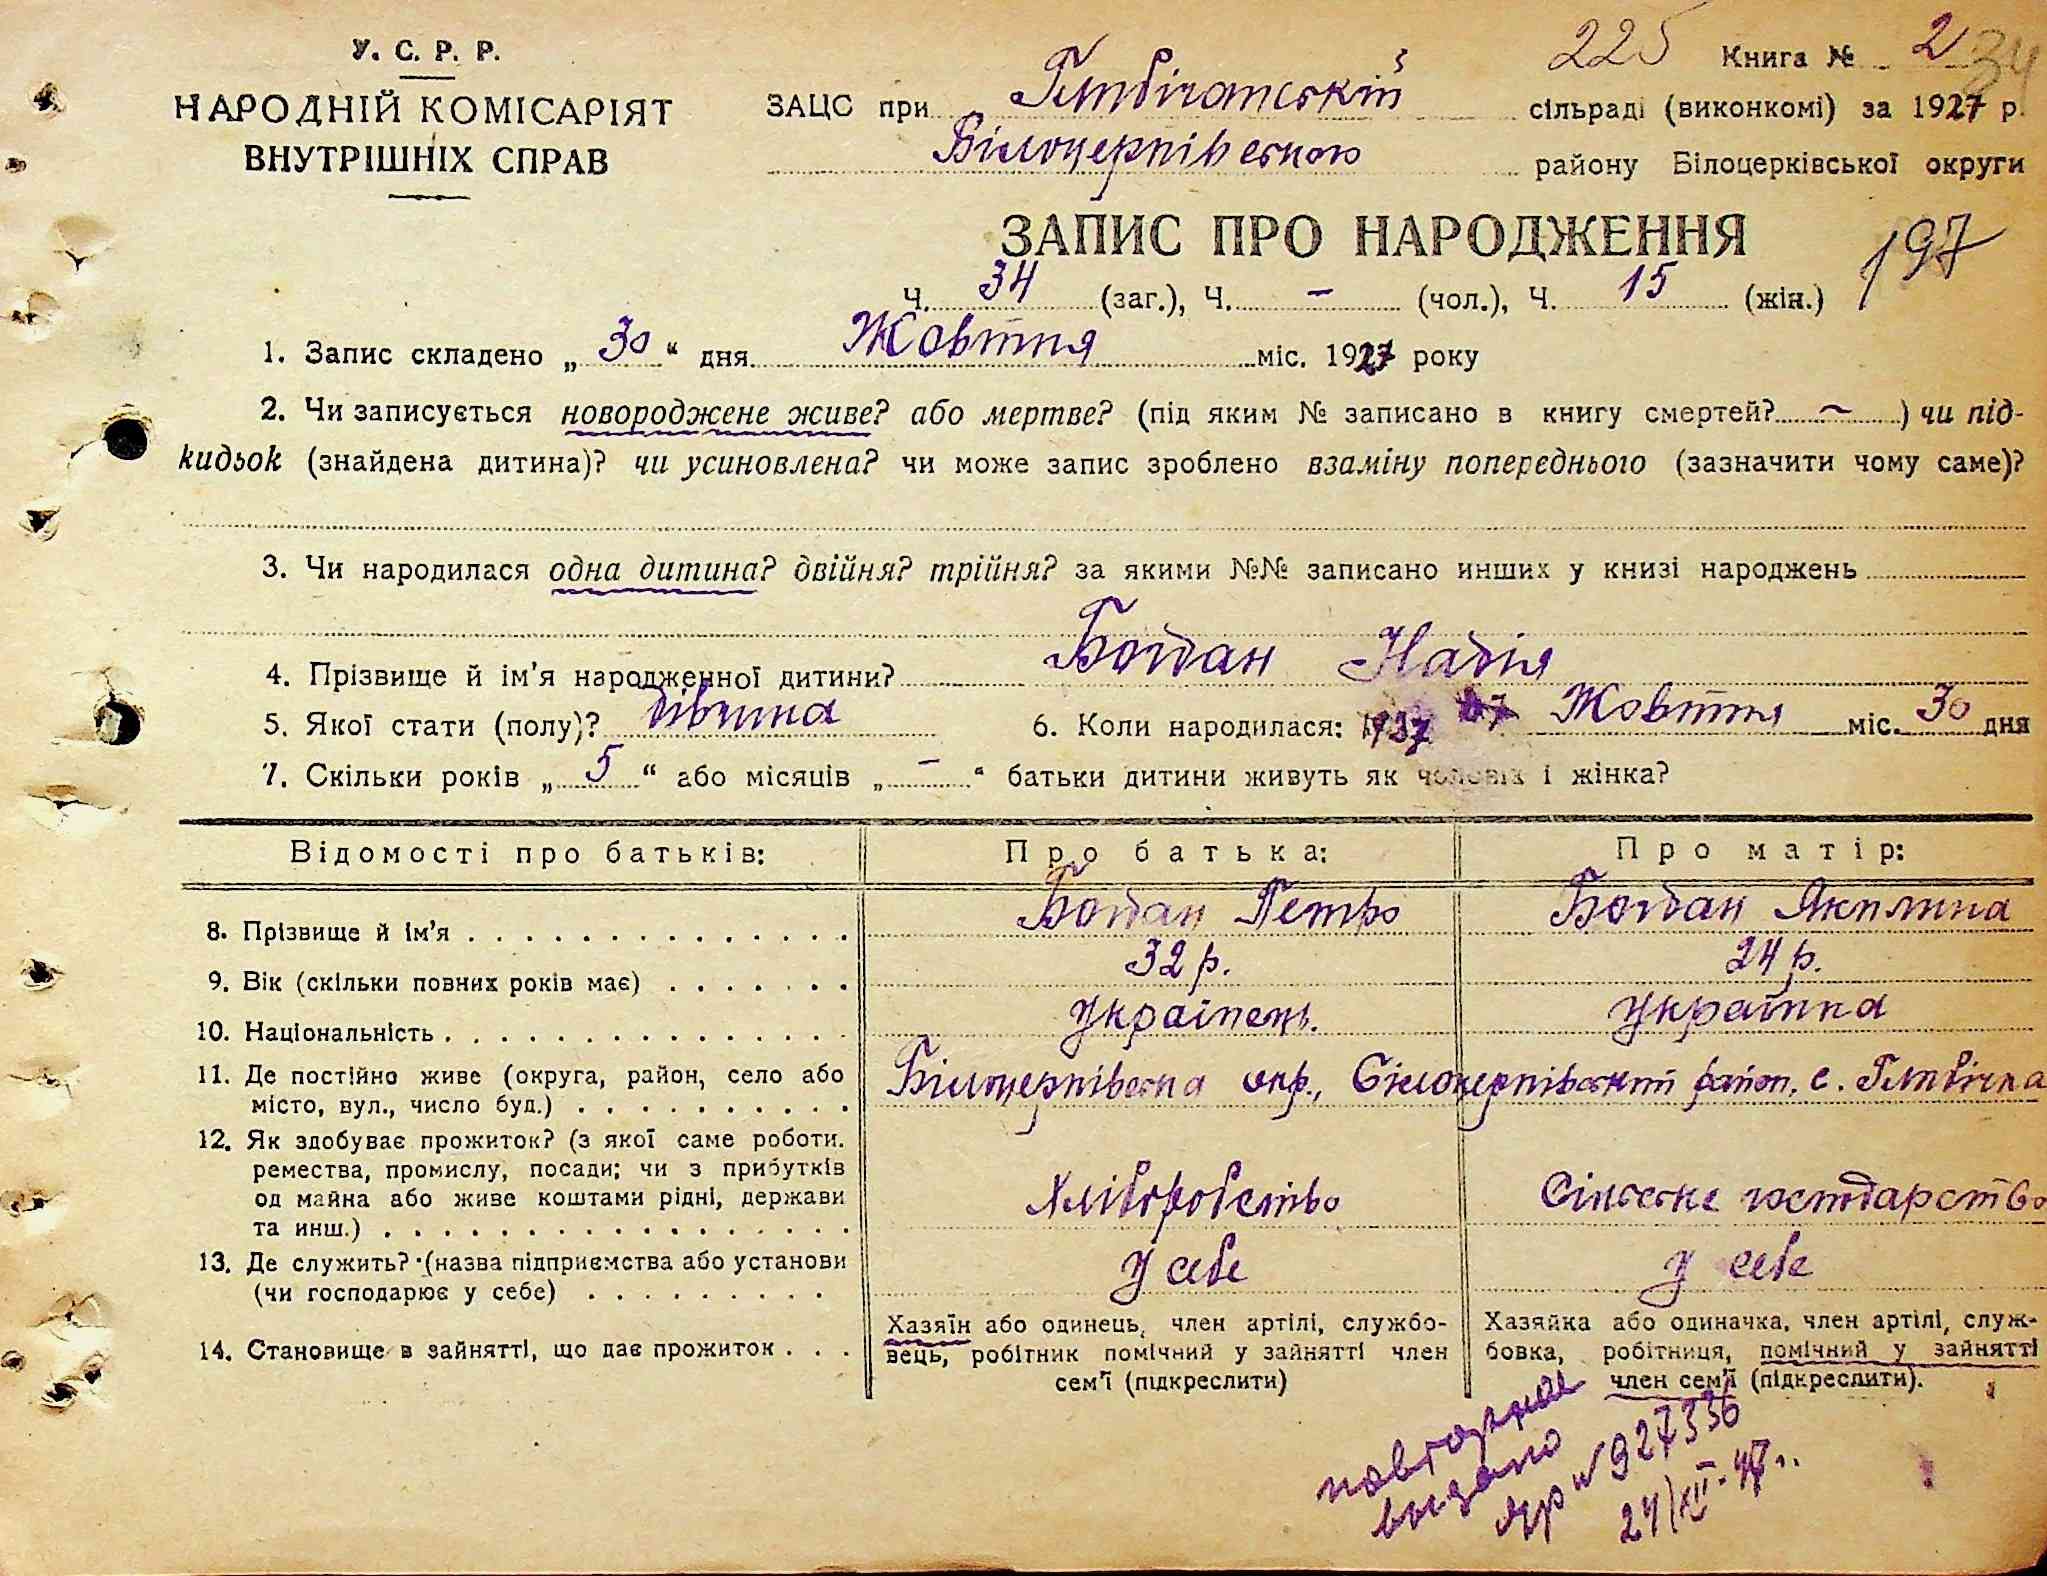 У. С. Р. Р.
НАРОДНІЙ КОМІСАРІЯТ
ВНУТРІШНІХ СПРАВ
225 Книга № 2 34
ЗАЦС при Глибічанській сільраді (виконкомі) за 1927 р.
Білоцерківського району Білоцерківської округи
ЗАПИС ПРО НАРОДЖЕННЯ
197
Ч. 34 (заг.), Ч. – (чол.), Ч. 15 (жін.)
1. Запис складено „ 30 “ дня Жовтня міс. 1927 року
2. Чи записується новороджене живе? або мертве? (під яким № записано в книгу смертей? ~ ) чи під-
кидьок (знайдена дитина)? чи усиновлена? чи може запис зроблено взаміну попереднього (зазначити чому саме)?
3. Чи народилася одна дитина? двійня? трійня? за якими №№ записано инших у книзі народжень
4. Прізвище й ім'я народженної дитини? Богдан Надія
5. Якої стати (полу)? дівчина 6. Коли народилася: 1927 Жовтня міс. 30 дня
7. Скільки років „ 5 “ або місяців „ – “ батьки дитини живуть як чоловік і жінка?
Відомості про батьків: Про батька: Про матір:
8. Прізвище й ім'я . . . . . . . . . . . . . . Богдан Петро Богдан Якилина
9. Вік (скільки повних років має) . . . . . . . 32 р. 24 р.
10. Національність . . . . . . . . . . . . . . . Українець. Українка
11. Де постійно живе (округа, район, село або
місто, вул., число буд.) . . . . . . . . . . Білоцерківська окр., Білоцерківський район, с. Глибічка
12. Як здобуває прожиток? (з якої саме роботи.
ремества, промислу, посади; чи з прибутків
од майна або живе коштами рідні, держави
та инш.) . . . . . . . . . . . . . . . . . Хліборобство Сільське господарство
13. Де служить? (назва підприємства або установи
(чи господарює у себе) . . . . . . . . . У себе У себе
14. Становище в зайнятті, що дає прожиток . . .
Хазяїн або одинець, член артілі, службо-
вець, робітник помічний у зайнятті член
сем'ї (підкреслити)
Хазяйка або одиначка, член артілі, служ-
бовка, робітниця, помічний у зайнятті
член сем'ї (підкреслити).
повторное
выдано
№ 927336
24/XII-47 г.